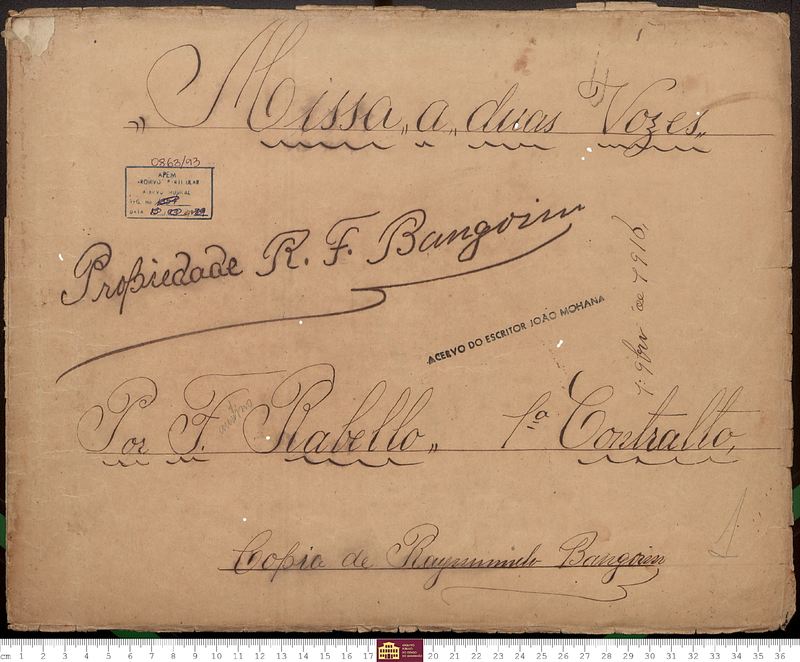 „Missa„ a„ duas Vozes„
0863/93
APEM
ACERVO MUSICAL
Propiedade R. F. Bangoim
ACERVO DO ESCRITOR JOÃO MOHANA
de 1916,
Por F. Rabello„ 1ª Contralto,
Copia de Raymundo Bangoim
cm 1 2 3 4 5 6 7 8 9 10 11 12 13 14 15 16 17 20 21 22 23 24 25 26 27 28 29 30 31 32 33 34 35 36